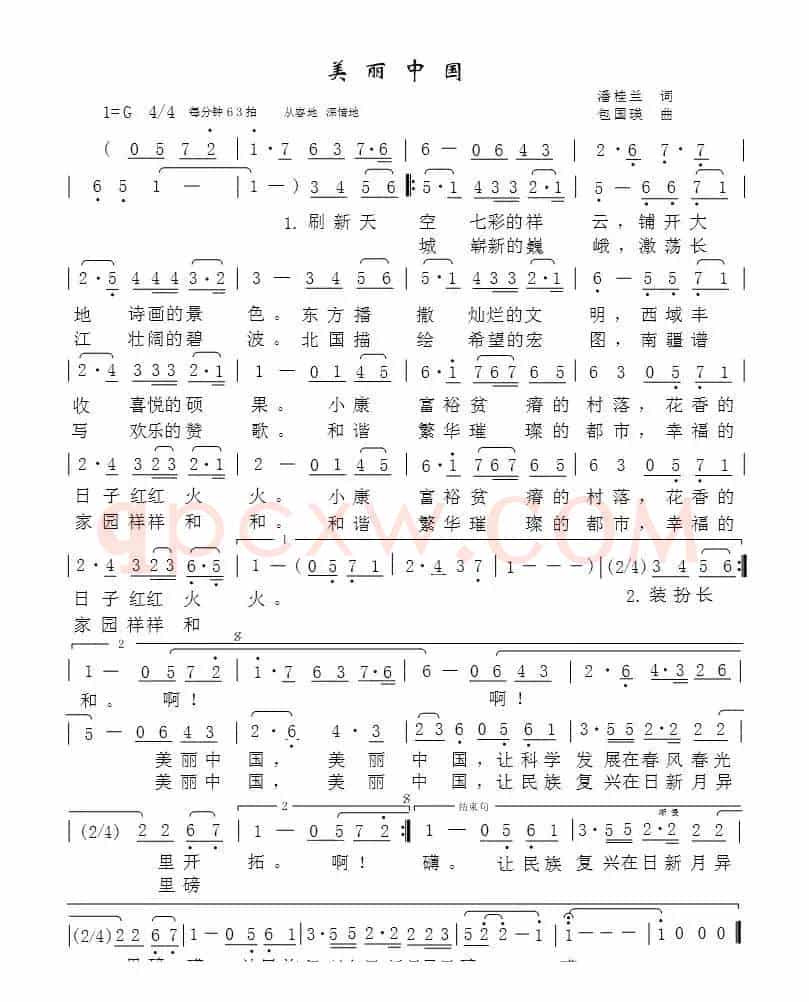 美 丽 中 国
潘桂兰 词
1=G 4/4 每分钟63拍 从容地 深情地
包国瑛 曲
( 0 5 7 2 | 1·7 6 3 7·6 | 6 — 0 6 4 3 | 2·6 7·7 |
| 6 5 1 — | 1 — ) 3 4 5 6 ‖: 5·1 4 3 3 2·1 | 5 — 6 6 7 1 |
1. 刷 新 天 空 七彩的 祥 云，铺 开 大
城 崭新的 巍 峨，激 荡 长
| 2·5 4 4 4 3·2 | 3 — 3 4 5 6 | 5·1 4 3 3 2·1 | 6 — 5 5 7 1 |
地 诗画的 景 色。东 方 播 撒 灿烂的 文 明，西 域 丰
江 壮阔的 碧 波。北 国 描 绘 希望的 宏 图，南 疆 谱
| 2·4 3 3 3 2·1 | 1 — 0 1 4 5 | 6·1 7 6 7 6 5 | 6 3 0 5 7 1 |
收 喜悦的 硕 果。 小 康 富 裕 贫 瘠 的 村 落，花 香 的
写 欢乐的 赞 歌。 和 谐 繁 华 璀 璨 的 都 市，幸 福 的
| 2·4 3 2 3 2·1 | 2 — 0 1 4 5 | 6·1 7 6 7 6 5 | 6 3 0 5 7 1 |
日 子 红红 火 火。 小 康 富 裕 贫 瘠 的 村 落，花 香 的
家 园 祥祥 和 和。 和 谐 繁 华 璀 璨 的 都 市，幸 福 的
qpcxw.COM
1
| 2·4 3 2 3 6·5 | 1 — (0 5 7 1 | 2·4 3 7 | 1 — — — ) | (2/4) 3 4 5 6 :‖
日 子 红红 火 火。 2. 装 扮 长
家 园 祥祥 和
2 𝄋
| 1 — 0 5 7 2 | 1·7 6 3 7·6 | 6 — 0 6 4 3 | 2·6 4·3 2 6 |
和。 啊！ 啊！
| 5 — 0 6 4 3 | 2·6 4·3 | 2 3 6 0 5 6 1 | 3·5 5 2·2 2 2 |
美 丽 中 国， 美 丽 中 国，让 科 学 发 展在春风春光
美 丽 中 国， 美 丽 中 国，让 民 族 复 兴在日新月异
2 𝄋 结束句 渐慢
| (2/4) 2 2 6 7 | 1 — 0 5 7 2 :‖ 1 — 0 5 6 1 | 3·5 5 2·2 2 2 |
里 开 拓。 啊！ 礴。 让 民 族 复 兴在日新月异
里 磅
|(2/4) 2 2 6 7 | 1 — 0 5 6 1 | 3·5 5 2 2 2 2 3 | 5 2 2 — 1 | 1 — — — | 1 0 0 0 ‖